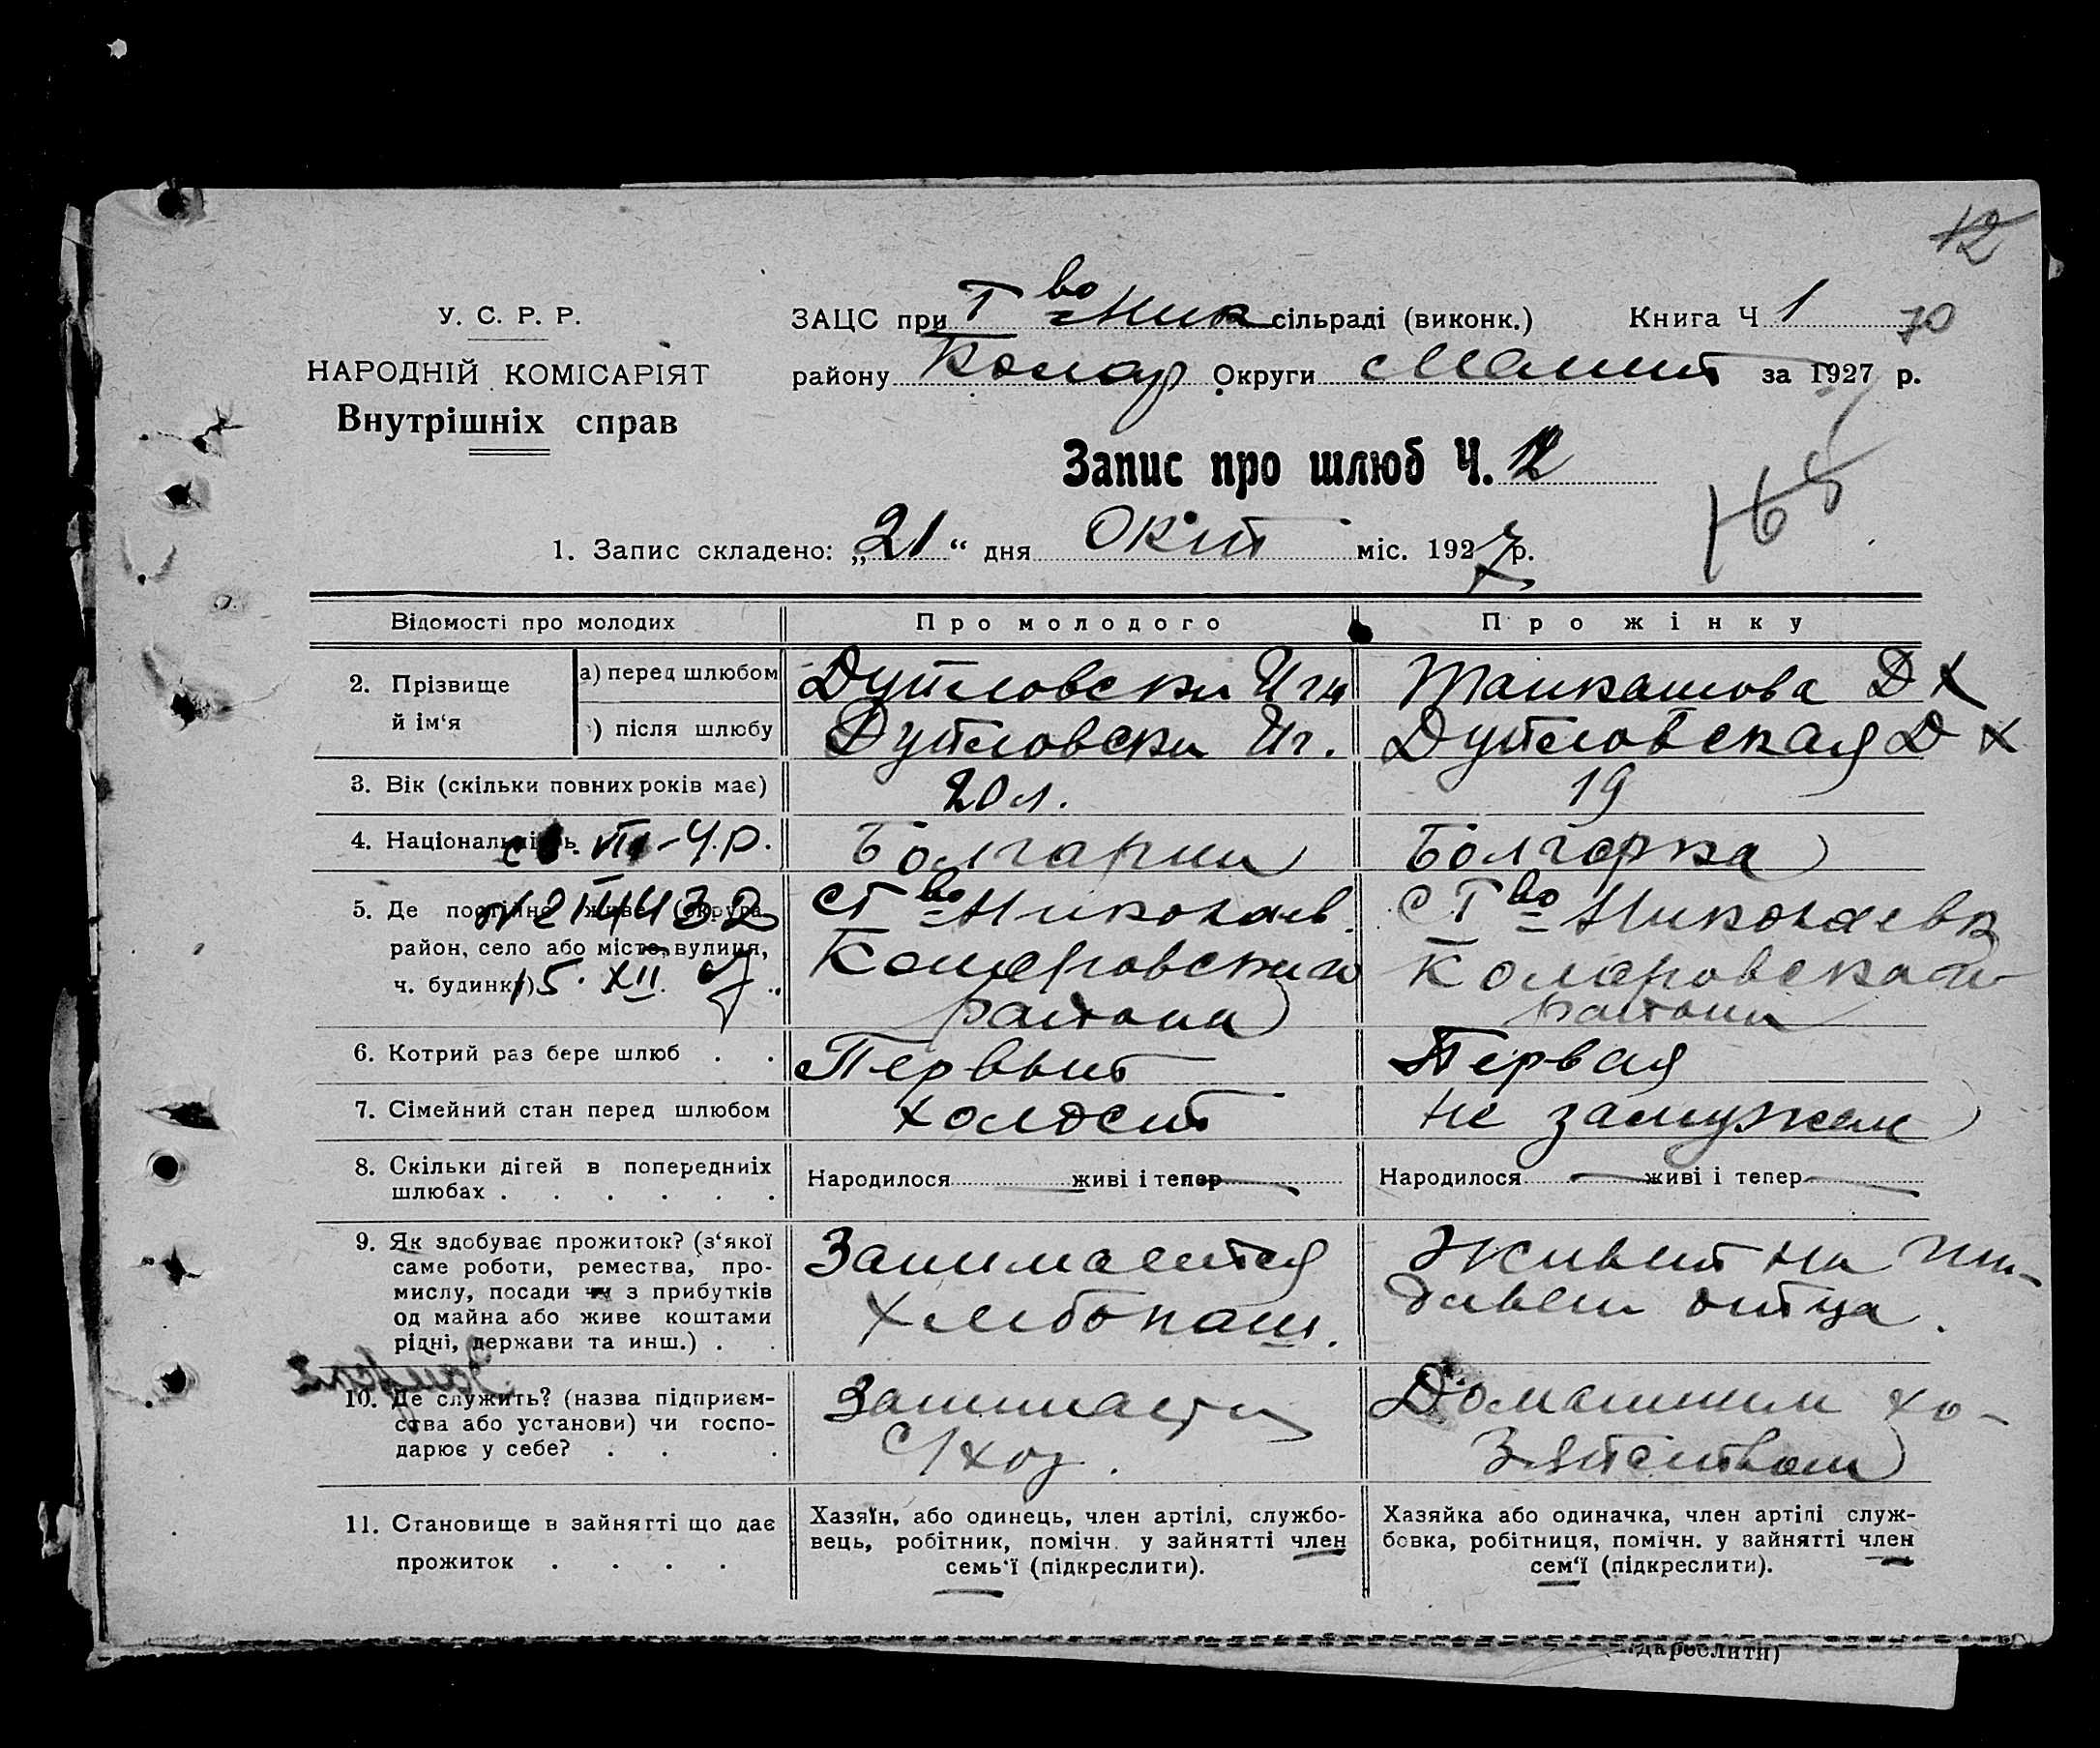 12
У. С. Р. Р.
НАРОДНІЙ КОМІСАРІЯТ
Внутрішніх справ
ЗАЦС при Т во Ник сільраді (виконк.) Книга Ч 1 70
району Колар Округи Мелит за 1927 р.
Запис про шлюб Ч. 12
165
1. Запис складено: „21“ дня Окт міс. 1927 р.
Відомості про молодих Про молодого Про жінку
2. Прізвище й ім‘я
а) перед шлюбом Дутловски Иги Танкашова Д Х
) після шлюбу Дутловски Иг. Дутловская Д Х
3. Вік (скільки повних років має) 20 л. 19
4. Національність Болгарин Болгарка
св. VII-ЧР.
5. Де постійно живе (округа,
район, село або місто, вулиця,
ч. будинку)
№ 214432
15. XII
СТ во Николаев.
Коларовского
района
СТ во Николаевк
Коларовского
района
6. Котрий раз бере шлюб . . Первый Первая
7. Сімейний стан перед шлюбом холост не замужем
8. Скільки дітей в попередніх
шлюбах . . . . . .
Народилося живі і тепер Народилося живі і тепер
9. Як здобуває прожиток? (з‘якої
саме роботи, ремества, про-
мислу, посади чи з прибутків
од майна або живе коштами
рідні, держави та инш.) . .
Занимается
хлебопаш.
Живет на иж-
дивен отца.
10. Де служить? (назва підприєм-
ства або установи) чи госпо-
дарює у себе? . . .
Занимается
С/хоз.
Домашним хо-
зяйством
11. Становище в зайнятті що дає
прожиток . . . .
Хазяїн, або одинець, член артілі, службо-
вець, робітник, помічн. у зайнятті член
семь‘ї (підкреслити).
Хазяйка або одиначка, член артілі служ-
бовка, робітниця, помічн. у зайнятті член
сем‘ї (підкреслити).